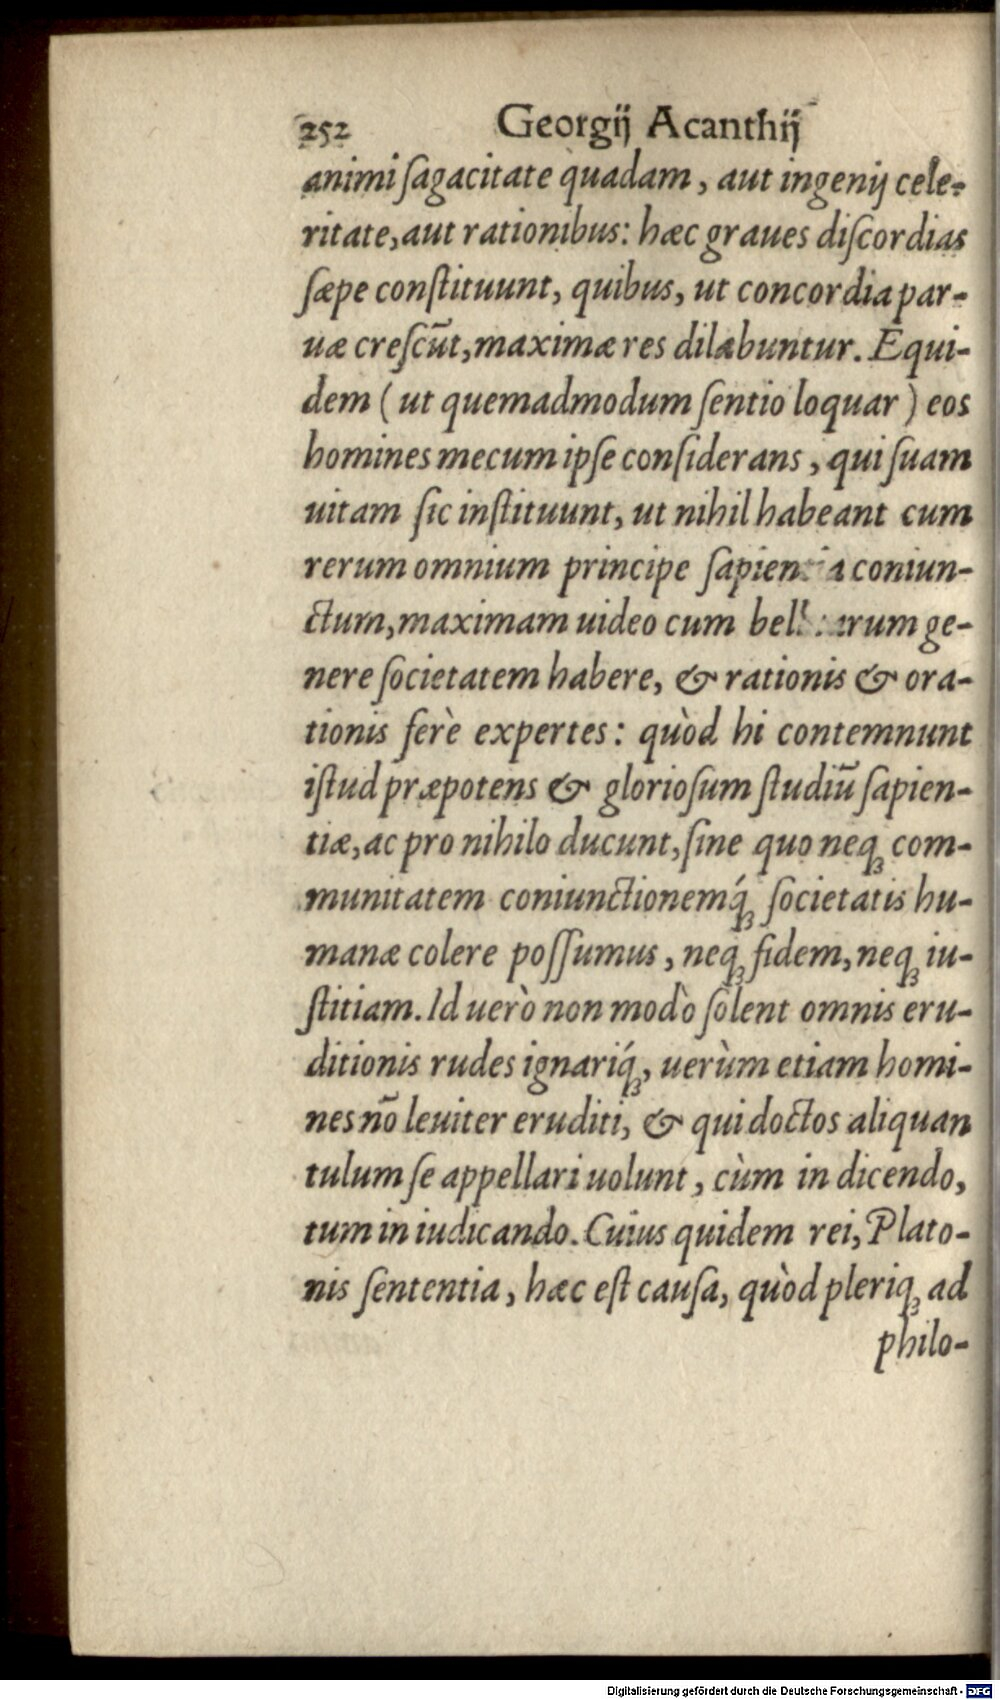 252 Georgij Acanthij
animi ſagacitate quadam, aut ingenij cele-
ritate, aut rationibus: hæc graues diſcordias
ſæpe conſtituunt, quibus, ut concordia par-
uæ creſcūt, maximæ res dilabuntur. Equi-
dem (ut quemadmodum ſentio loquar) eos
homines mecum ipſe conſiderans, qui ſuam
uitam ſic inſtituunt, ut nihil habeant cum
rerum omnium principe coniun-
ctum, maximam uideo cum ge-
nere ſocietatem habere, & rationis & ora-
tionis ferè expertes: quòd hi contemnunt
iſtud præpotens & glorioſum ſtudiū ſapien-
tiæ, ac pro nihilo ducunt, ſine quo neqꝫ com-
munitatem coniunctionemq́ꝫ ſocietatis hu-
manæ colere poſſumus, neqꝫ fidem, neqꝫ iu-
ſtitiam. Id uerò non modò ſolent omnis eru-
ditionis rudes ignariq́ꝫ, uerùm etiam homi-
nes nō leuiter eruditi, & qui doctos aliquan
tulum ſe appellari uolunt, cùm in dicendo,
tum in iudicando. Cuius quidem rei, Plato-
nis ſententia, hæc eſt cauſa, quòd pleriqꝫ ad
philo-
Digitalisierung gefördert durch die Deutsche Forschungsgemeinschaft - DFG